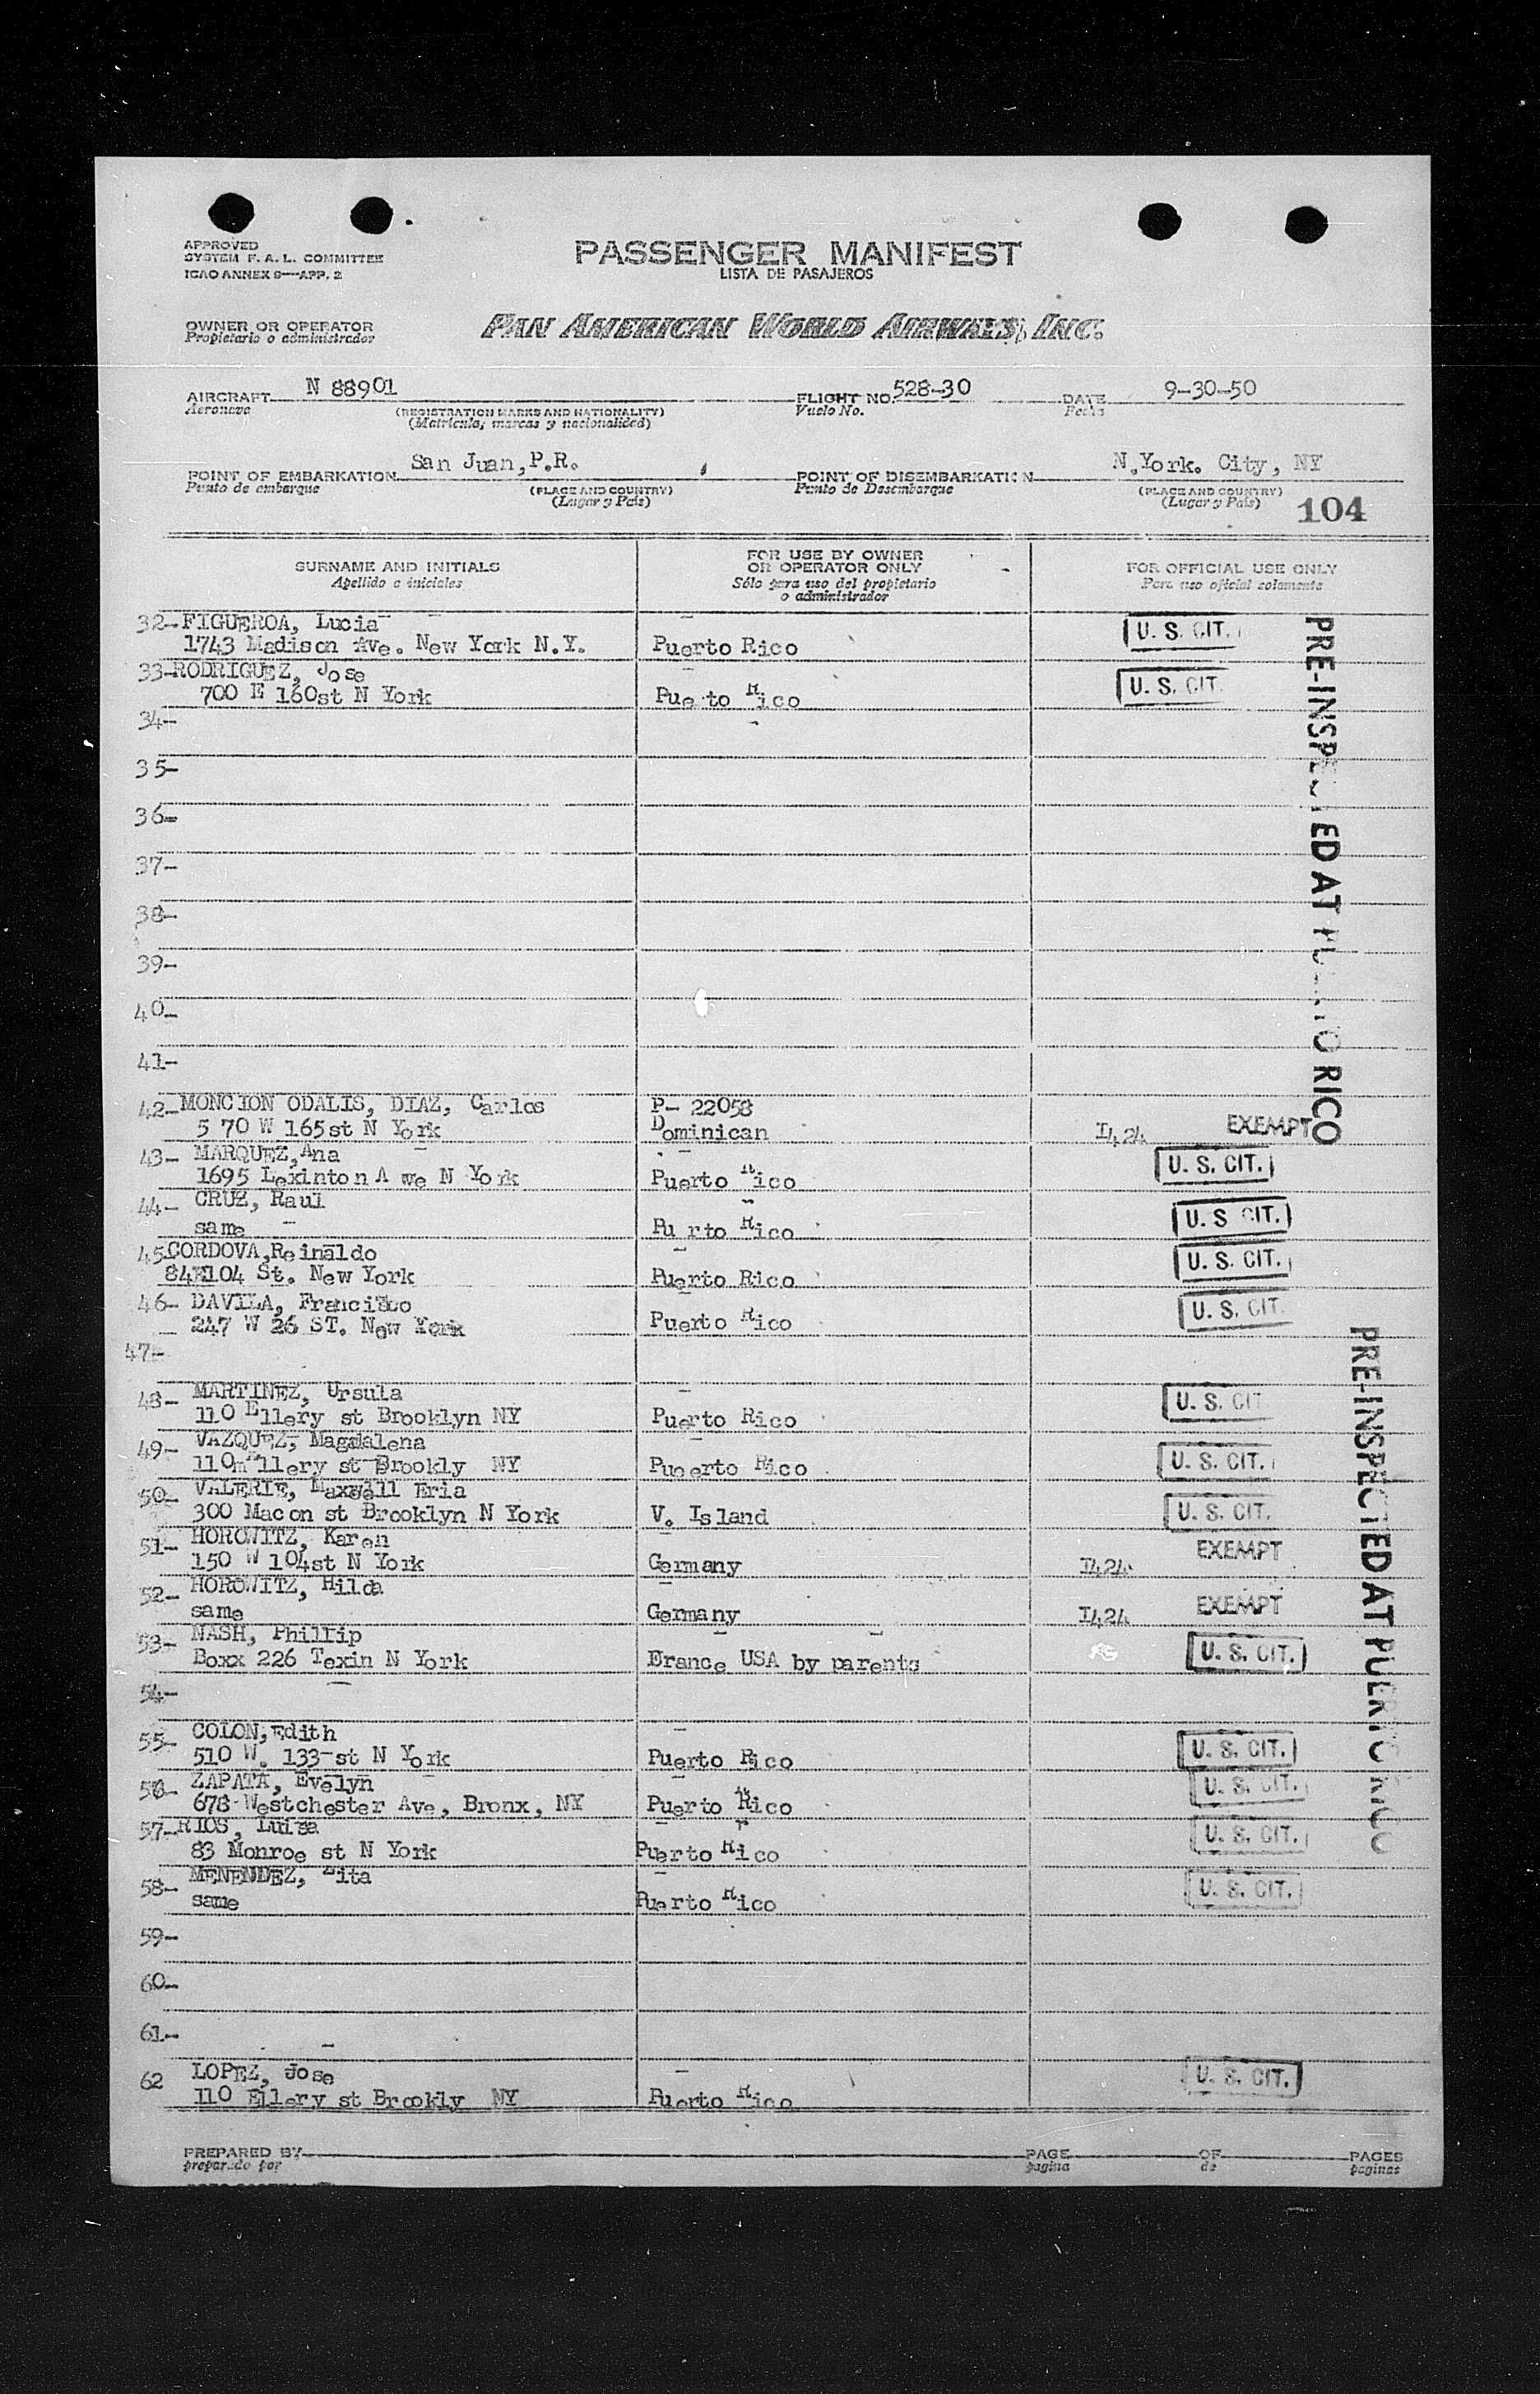 APPROVED
SYSTEM F. A. L. COMMITTEE
ICAO ANNEX 9—APP. 2
PASSENGER MANIFEST
LISTA DE PASAJEROS
OWNER OR OPERATOR
Propietario o administrador
PAN AMERICAN WORLD AIRWAYS, INC.
AIRCRAFT N 88901 FLIGHT NO. 528-30 DATE 9-30-50
Aeronave (REGISTRATION MARKS AND NATIONALITY) Vuelo No. Fecha
(Matricula, marcas y nacionalidad)
POINT OF EMBARKATION San Juan, P.R. POINT OF DISEMBARKATION N.York. City, NY
Punto de embarque (PLACE AND COUNTRY) Punto de Desembarque (PLACE AND COUNTRY)
(Lugar y País) (Lugar y País) 104
SURNAME AND INITIALS FOR USE BY OWNER OR OPERATOR ONLY FOR OFFICIAL USE ONLY
Apellido e iniciales Sólo para uso del propietario o administrador Para uso oficial solamente
32- FIGUEROA, Lucia U. S. CIT.
1743 Madison Ave. New York N.Y. Puerto Rico
33- RODRIGUEZ, Jose U. S. CIT.
700 E 160st N York Pue to Rico
34-
35-
36-
37-
38-
39-
40-
41-
42- MONCION ODALIS, DIAZ, Carlos P- 22058
5 70 W 165st N York Dominican I424 EXEMPT
43- MARQUEZ, Ana U. S. CIT.
1695 Lexinton A ve N York Puerto Rico
44- CRUZ, Raul U. S. CIT.
same Pu rto Rico
45 CORDOVA, Reinaldo U. S. CIT.
84E104 St. New York Puerto Rico
46- DAVILA, Francisco U. S. CIT.
247 W 26 ST. New York Puerto Rico
47-
48- MARTINEZ, Ursula U. S. CIT.
110 Ellery st Brooklyn NY Puerto Rico
49- VAZQUEZ, Magdalena U. S. CIT.
110 Ellery st Brookly NY Puoerto Rico
50- VALERIE, Maxwell Eria U. S. CIT.
300 Macon st Brooklyn N York V. Island
51- HOROWITZ, Karen EXEMPT
150 W 104st N York Germany I424
52- HOROWITZ, Hilda EXEMPT
same Germany I424
53- NASH, Phillip U. S. CIT.
Boxx 226 Texin N York France USA by parents
54-
55- COLON, Edith U. S. CIT.
510 W. 133-st N York Puerto Rico
56- ZAPATA, Evelyn U. S. CIT.
678 Westchester Ave, Bronx, NY Puerto Rico
57- RIOS, Luisa U. S. CIT.
83 Monroe st N York Puerto Rico
58- MENENDEZ, U. S. CIT.
same Puerto Rico
59-
60-
61-
62 LOPEZ, Jose U. S. CIT.
110 Ellery st Brookly NY Puerto Rico
PRE-INSPECTED AT PUERTO RICO
PRE-INSPECTED AT PUERTO RICO
PREPARED BY PAGE OF PAGES
preparado por pagina de paginas